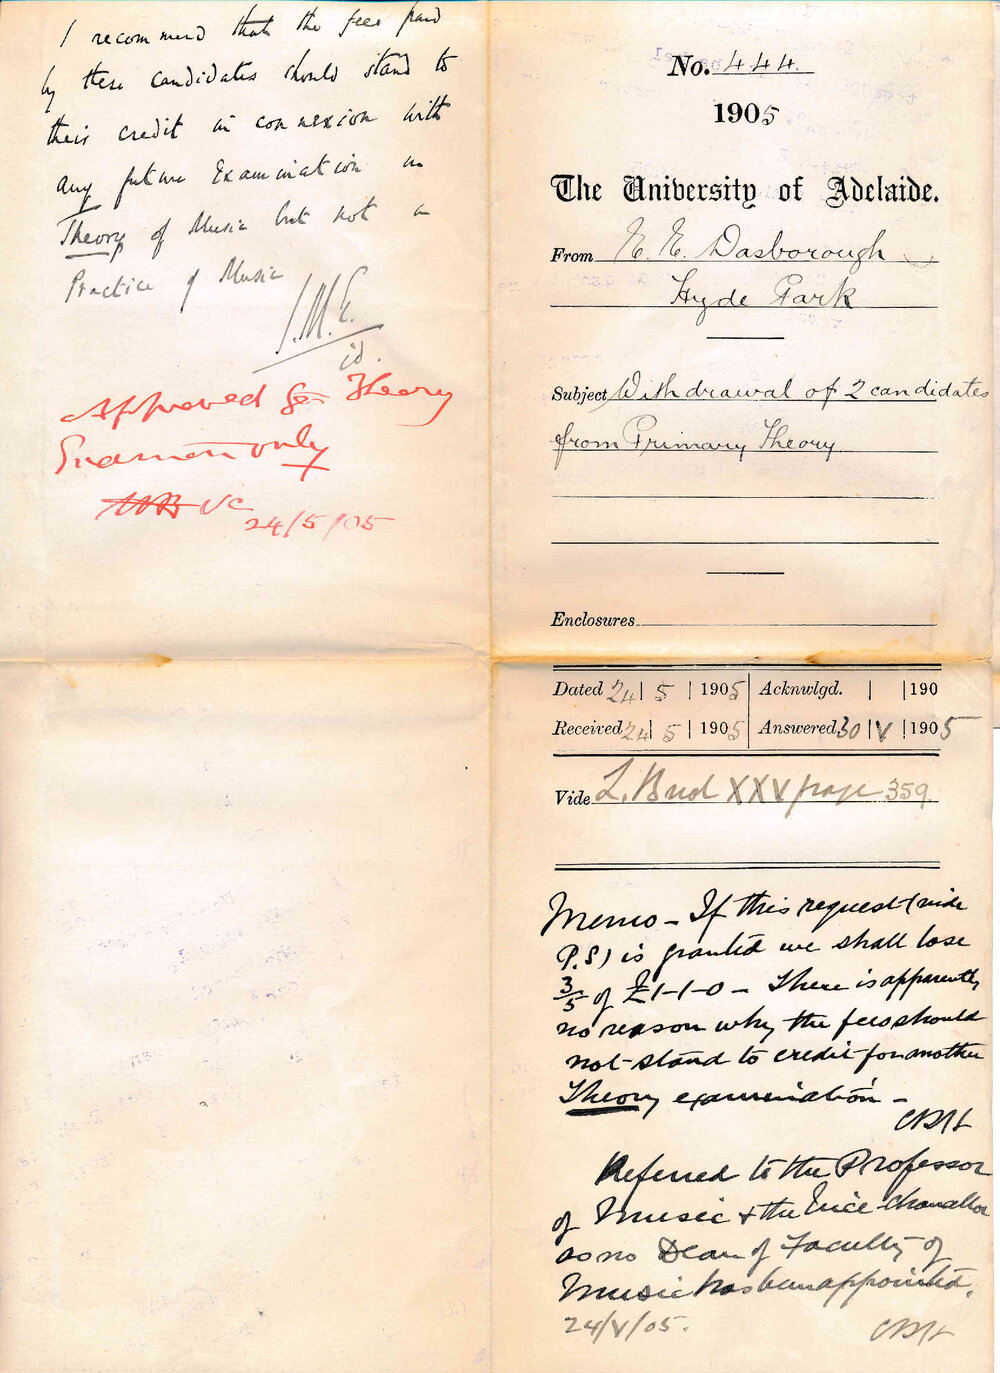 I recommend that the fees paid
by these candidates should stand to
their credit in connexion with
any future Examination in
Theory of Music but not in
Practice of Music
id.
Approved for Theory
Examen only
VC
24/5/05
No. 444
1905
The University of Adelaide.
From E. E. Dasborough
Hyde Park
Subject Withdrawal of 2 candidates
from Primary Theory
Enclosures
Dated 24 | 5 | 1905 Acknwlgd. | | 190
Received 24 | 5 | 1905 Answered 30 | V | 1905
Vide L. Bk XXV page 359.
Memo - If this request (vide
P.S) is granted we shall lose
3/5 of £1-1-0 - There is apparently
no reason why the fees should
not stand to credit for another
Theory examination -
CRH
Referred to the Professor
of Music & the Vice-Chancellor
as no Dean of Faculty of
Music has been appointed.
24/V/05.
CRH